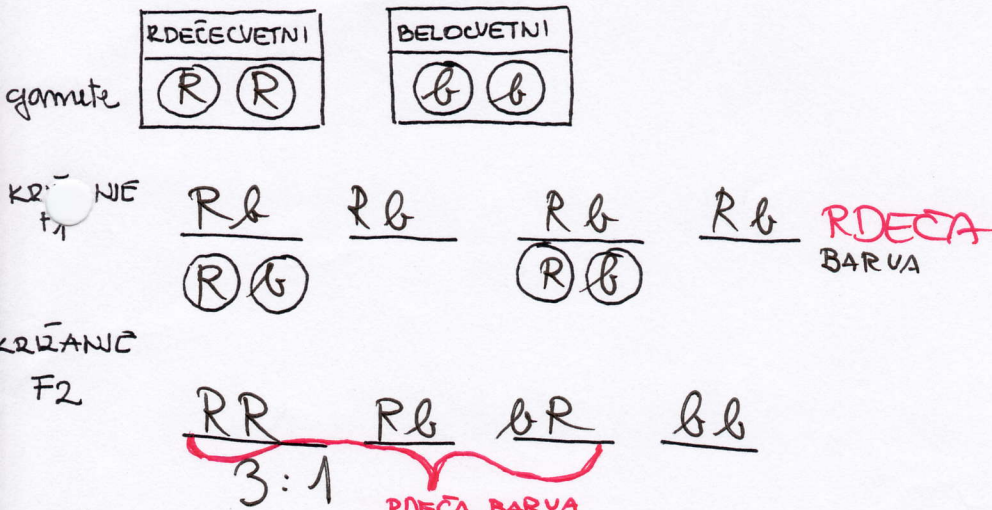 RDEČECVETNI BELOCVETNI
gamete R R b b
KRIŽANJE F1
Rb Rb Rb Rb RDEČA
BARVA
R b R b
KRIŽANJE
F2
RR Rb bR bb
3:1
RDEČA BARVA